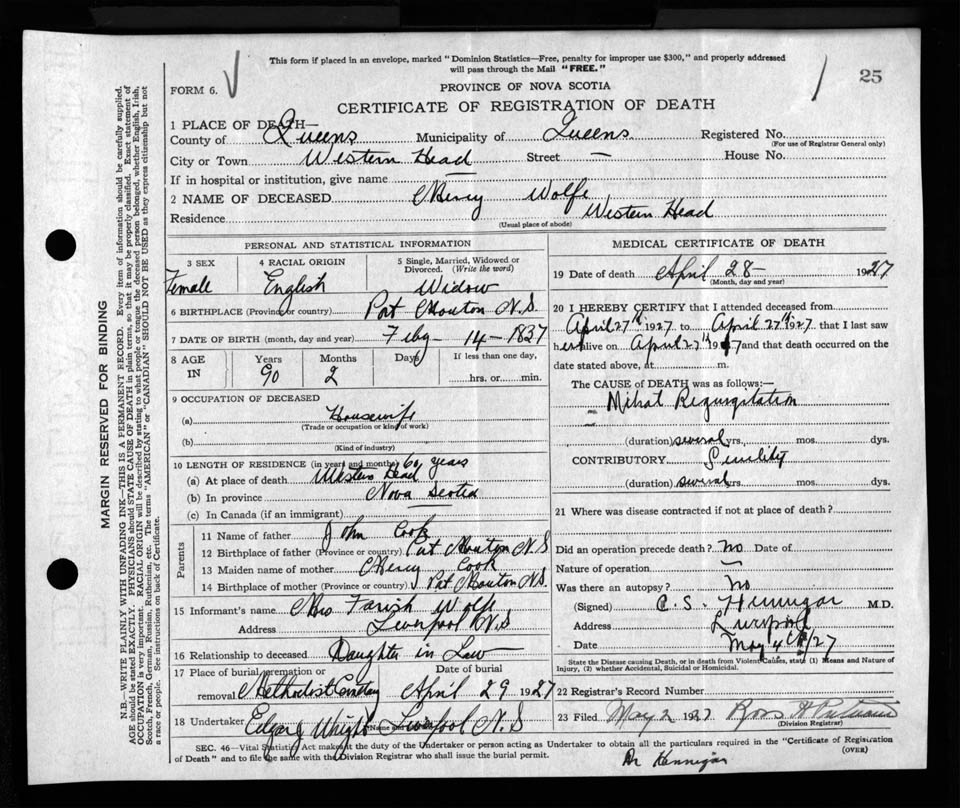 This form if placed in an envelope, marked "Dominion Statistics—Free, penalty for improper use $300," and properly addressed
will pass through the Mail "FREE."
25
FORM 6.
PROVINCE OF NOVA SCOTIA
CERTIFICATE OF REGISTRATION OF DEATH
1 PLACE OF DEATH—
County of Queens Municipality of Queens Registered No.
(For use of Registrar General only)
City or Town Western Head Street — House No.
If in hospital or institution, give name —
2 NAME OF DECEASED Mercy Wolfe
Residence Western Head
(Usual place of abode)
PERSONAL AND STATISTICAL INFORMATION
3 SEX Female
4 RACIAL ORIGIN English
5 Single, Married, Widowed or Divorced. (Write the word) Widow
6 BIRTHPLACE (Province or country) Port Mouton N.S.
7 DATE OF BIRTH (month, day and year) 14 – 1837
8 AGE IN Years 90 Months 2 Days If less than one day, hrs. or min.
9 OCCUPATION OF DECEASED
(a) Housewife
(Trade or occupation or kind of work)
(b)
(Kind of industry)
10 LENGTH OF RESIDENCE (in years and months) 60 years
(a) At place of death Western Head
(b) In province Nova Scotia
(c) In Canada (if an immigrant)
Parents
11 Name of father John Cook
12 Birthplace of father (Province or country) Port Mouton N.S
13 Maiden name of mother Mercy Cook
14 Birthplace of mother (Province or country) Port Mouton N.S.
15 Informant's name Mrs Farish Wolfe
Address Liverpool N.S
16 Relationship to deceased Daughter in Law
17 Place of burial, cremation or removal Methodist Cemetery Date of burial April 29 1927
18 Undertaker Edgar J Wright Liverpool N.S
(Name and address)
MEDICAL CERTIFICATE OF DEATH
19 Date of death April 28 – 1927
(Month, day and year)
20 I HEREBY CERTIFY that I attended deceased from
April 27th 1927 to April 27th 1927 that I last saw
her alive on April 27th 1927 and that death occurred on the
date stated above, at m.
The CAUSE of DEATH was as follows:—
Mitral Regurgitation
(duration) several yrs. mos. dys.
CONTRIBUTORY Senility
(duration) several yrs. mos. dys.
21 Where was disease contracted if not at place of death?
Did an operation precede death? no Date of
Nature of operation —
Was there an autopsy? No
(Signed) C. S. Hennigar M.D.
Address Liverpool
Date May 4th/27
State the Disease causing Death, or in death from Violent Causes, state (1) Means and Nature of
Injury, (2) whether Accidental, Suicidal or Homicidal.
22 Registrar's Record Number
23 Filed May 2 1927 Ross H
(Division Registrar)
SEC. 46—Vital Statistics Act makes it the duty of the Undertaker or person acting as Undertaker to obtain all the particulars required in the "Certificate of Registration
of Death" and to file the same with the Division Registrar who shall issue the burial permit.
(OVER)
Dr Hennigar
MARGIN RESERVED FOR BINDING
N.B.—WRITE PLAINLY WITH UNFADING INK—THIS IS A PERMANENT RECORD. Every item of information should be carefully supplied.
AGE should be stated EXACTLY. PHYSICIANS should STATE CAUSE OF DEATH in plain terms, so that it may be properly classified. Exact statement of
OCCUPATION is very important. RACIAL ORIGIN will be described by stating to what people or tongue the deceased person belonged, whether English, Irish,
Scotch, French, German, Russian, Ruthenian, etc. The terms "AMERICAN" or "CANADIAN" SHOULD NOT BE USED as they express citizenship but not
a race or people. See instructions on back of Certificate.